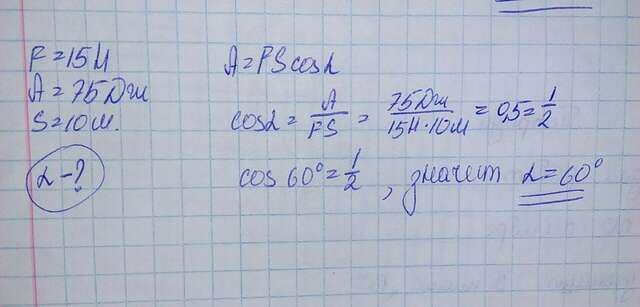 F = 15 Н
A = 75 Дж
S = 10 м.
α - ?
A = FS cos α
cos α = A/FS = 75 Дж/15 Н · 10 м = 0,5 = 1/2
cos 60° = 1/2, значит α = 60°